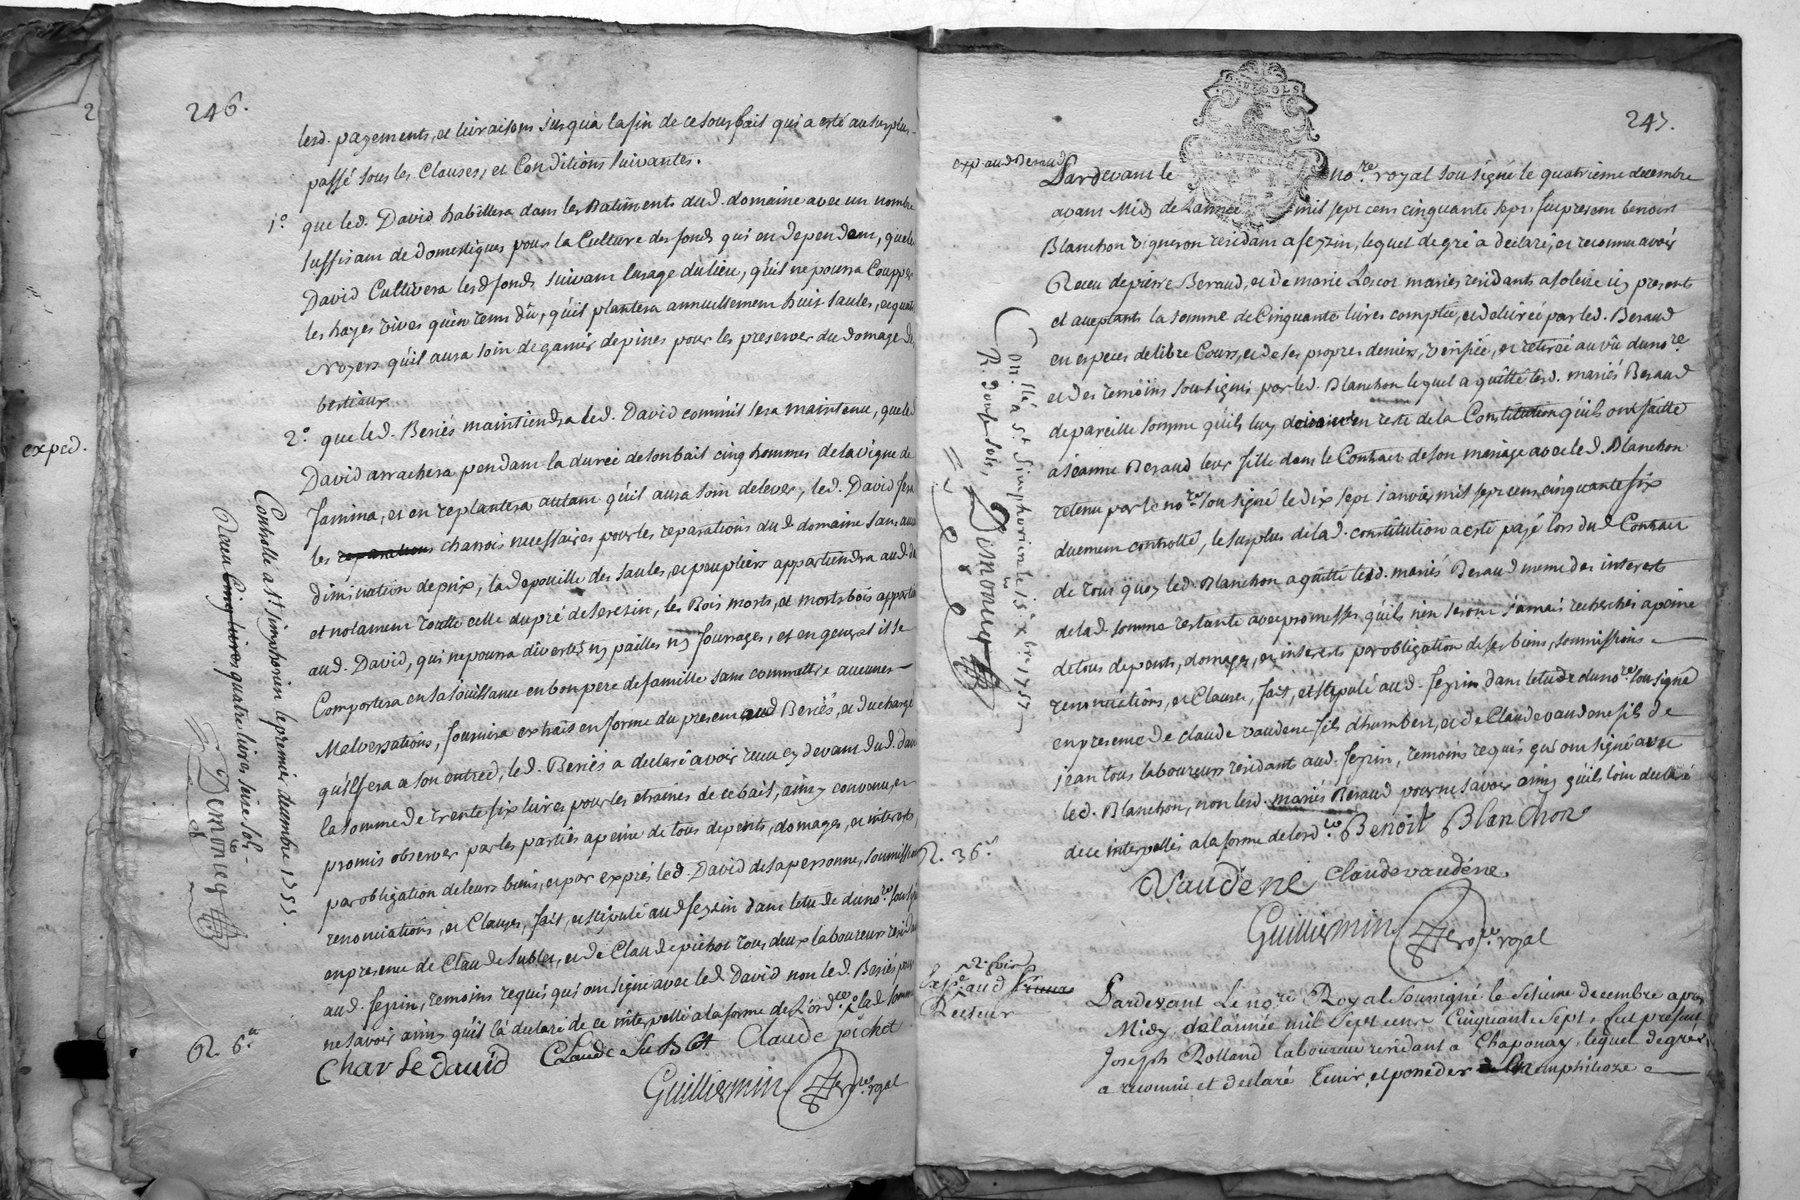 246.
lesd. payements, et livraisons jusqua la fin de ce sousbail qui a esté au surplus
passé sous les Clauses, et Conditions suivantes.
1.º que led. David habittera dans les Batiments dud. domaine avec un nombre
suffisant de domestiques pour la Culture des fonds qui en dependent, que led.
David Cultivera lesd fonds suivant l'usage du lieu, qu'il ne pourra Coupper
les hayes vives qu'en tems dû, qu'il plantera annuellement huit saules, et quatre
noyers qu'il aura soin de garnir d'epines pour les preserver du domage des
bestiaux
2.º que led. Beriés maintiendra led. David comm'il sera maintenu, que led
David arrachera pendant la durée de son bail cinq hommes de la vigne de
famina, et en replantera autant qu'il aura soin d'elever, led. David fera
les reparations charrois necessaires pour les reparations dud domaine sans aucune
diminution de prix, la depouille des saules, et peupliers appartiendra aud. David
et notament toutte celle du pré de Seresin, les Bois morts, et morts bois appartiendront
aud. David, qui ne pourra divertir ny pailles ny fourrages, et en general il se
Comportera en sa jouissance en bon pere de famille sans commettre aucunes
Malversations, fournira extrait en forme du present aud Beriés, et du charge
qu'il fera a son entrée, led. Beriés a declaré avoir receu cy devant dud. David
la somme de trente six livres pour les etraines de ce bail, ainsy convenu, et
promis observer par les parties a peine de tous depents, domages, et interests,
par obligation de leurs biens, et par exprés led. David de sa personne, soumissions
renonciations, et Clauses, fait, et stipulé aud feyzin dans l'etude du no.re sousigné
en presence de Claude Sublet, et de Claude pichot tous deux laboureurs residants
aud. feyzin, temoins requis qui ont signé avec led David non led. Beriés pour
ne savoir ainsy qu'il l'a declaré de ce interpellé a la forme de l'ord.ce
Charle david Claude Sublet Claude pichot
Guilliermin no.re royal
exped.
Controllé a st simphorien le premier decembre 1757.
Receu Cinq livres quatre livres seize sols
Demoney
R. 6.
247.
exp aud Beraud
Pardevant le no.re royal sousigné le quatrieme decembre
avant Midy de l'année mil sept cent cinquante sept fut present benoist
Blanchon vigneron residant a feyzin, lequel de gré a declaré, et reconnu avoir
Receu de pierre Beraud, et de marie Lescot mariés residants a solaize icy present
et acceptants la somme de Cinquante livres comptée, et delivrée par led. Beraud
en especes de libre Cours, et de ses propres deniers, verifiée, et retirée au vû du no.re
et des temoins sousignés par led. Blanchon lequel a quitté lesd. mariés Beraud
de pareille somme qu'ils luy doivent en reste de la Constitution qu'ils ont faitte
a jeanne Beraud leur fille dans le Contract de son mariage avec led. Blanchon
retenu par le no.re sousigné le dix sept janvier mil sept cent cinquante six
duement controllé, le surplus de lad. constitution a esté payé lors dud Contract
de tout quoy led. Blanchon a quitté lesd. mariés Beraud meme des interest
de lad. somme restante avec promesse qu'ils n'en seront jamais recherchés a peine
de tous depents, domages, et interests par obligation de ses biens, soumissions
renonciations, et Clauses, fait, et stipulé aud. feyzin dans l'etude du no.re sousigné
en presence de claude vaudene fils d'humbert, et de Claude vaudene fils de
jean tous laboureurs residants aud. feyzin, temoins requis qui ont signé avec
led. Blanchon, non lesd. mariés Beraud pour ne savoir ainsy qu'ils l'ont declaré
de ce interpellés a la forme de l'ord.ce Benoit Blanchon
Vaudene Claude vaudéne
Guilliermin no.re royal
Con.llé a s.t simphorien le 15.e xbre 1757
R. douze sols,
Demoney
R. 36.
Exp.é aud
Recteur
Pardevant Le no.re Royal Sousigné le Sisieme decembre apres
Midy, de l'année mil Sept cent Cinquante Sept, fut present
Joseph Rolland laboureur residant a Chaponay, lequel de gré
a reconnu et declaré Tenir, et posseder en Emphiteose